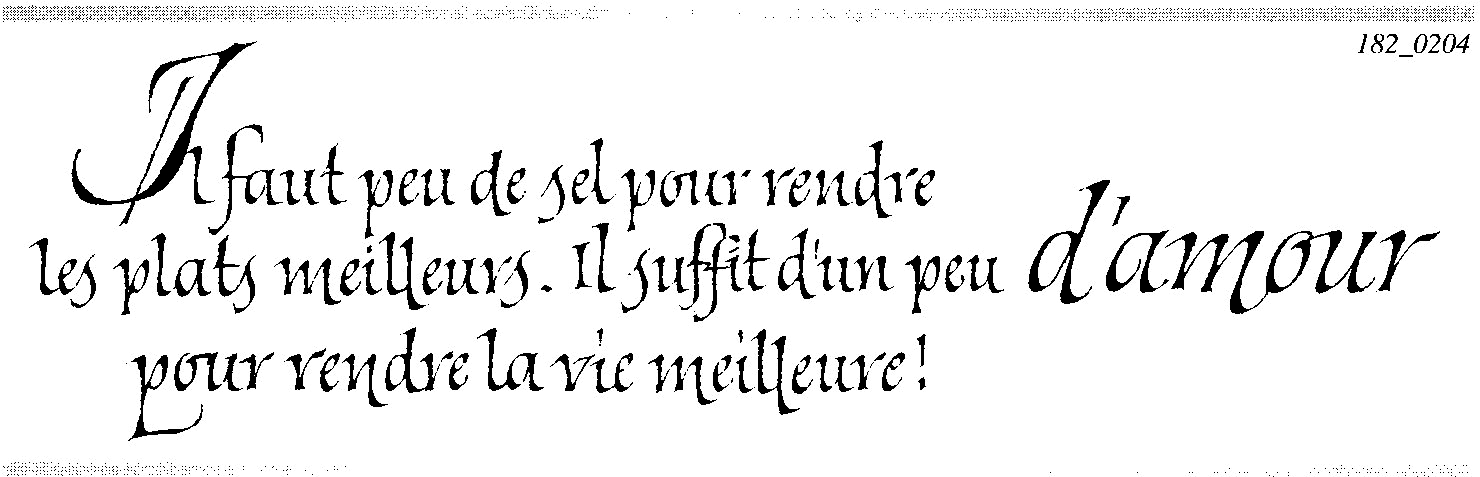 182_0204
Il faut peu de sel pour rendre
les plats meilleurs. Il suffit d'un peu d'amour
pour rendre la vie meilleure!